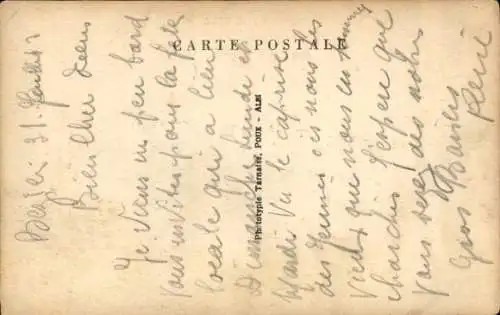 CARTE POSTALE
Phototypie Tarnaise, POUX - ALBI
31 Juillet
Bien cher
Je viens un peu tard
vous invités pour la fête
locale qui a lieu
Dimanche Lundi et
Mardi Vu le caprice
des jeunes ces nous les
Vieux que nous en sommes
chargés J'espère que
vous serez des nôtres
Gros Baisers
René